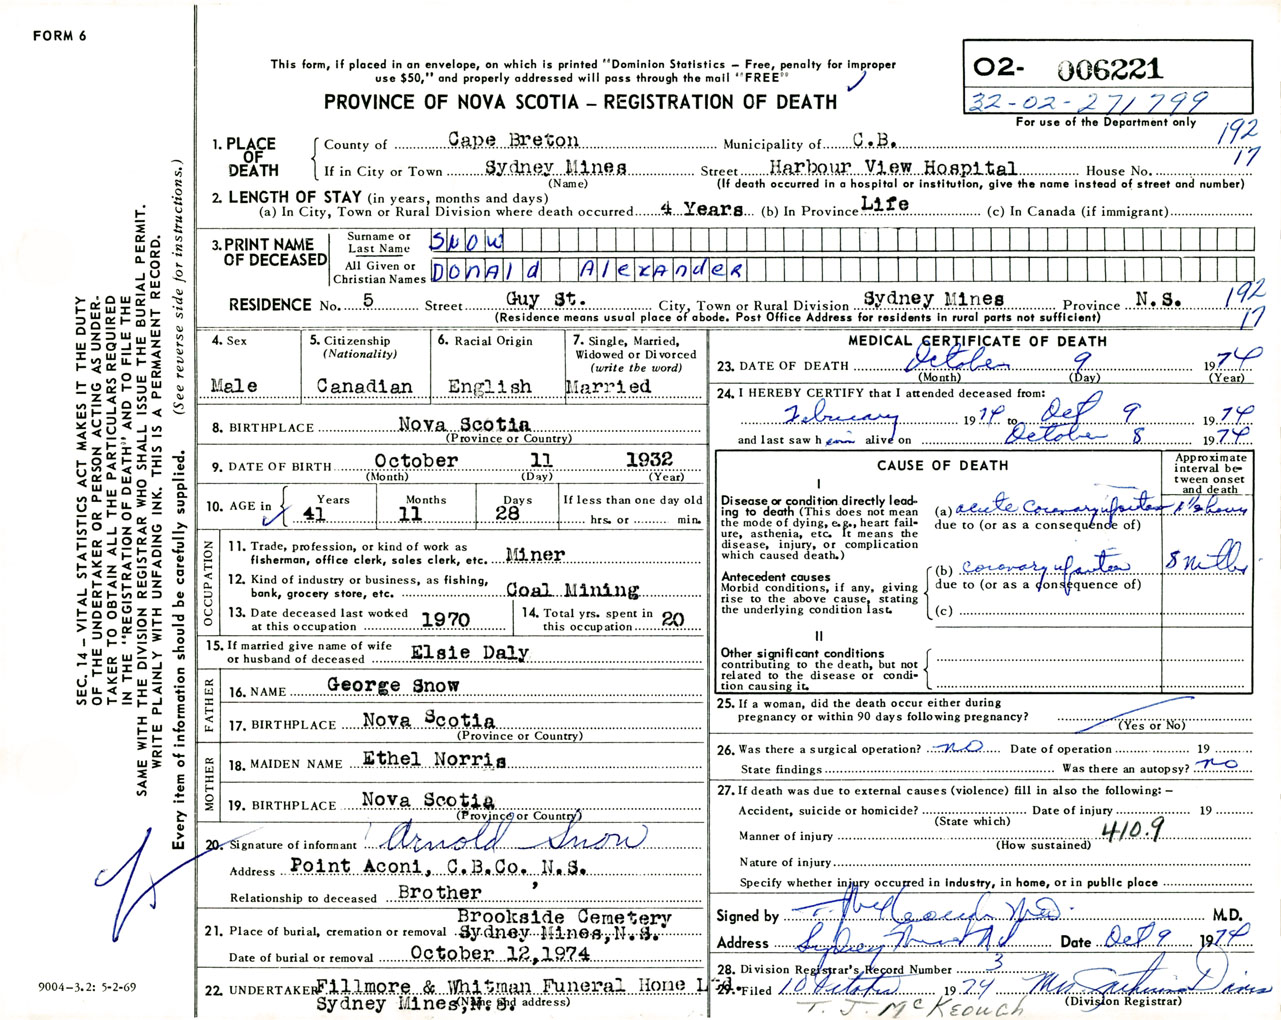 FORM 6
This form, if placed in an envelope, on which is printed "Dominion Statistics – Free, penalty for improper
use $50," and properly addressed will pass through the mail "FREE"
PROVINCE OF NOVA SCOTIA – REGISTRATION OF DEATH
02- 006221
32-02-271799
For use of the Department only
192
17
1. PLACE OF DEATH
County of Cape Breton Municipality of C.B.
If in City or Town Sydney Mines Street Harbour View Hospital House No.
(Name) (If death occurred in a hospital or institution, give the name instead of street and number)
2. LENGTH OF STAY (in years, months and days)
(a) In City, Town or Rural Division where death occurred 4 Years (b) In Province Life (c) In Canada (if immigrant)
3. PRINT NAME OF DECEASED
Surname or Last Name SNOW
All Given or Christian Names DONAld AlexANdeR
RESIDENCE No. 5 Street Guy St. City, Town or Rural Division Sydney Mines Province N.S.
192
17
(Residence means usual place of abode. Post Office Address for residents in rural parts not sufficient)
4. Sex
Male
5. Citizenship
(Nationality)
Canadian
6. Racial Origin
English
7. Single, Married,
Widowed or Divorced
(write the word)
Married
8. BIRTHPLACE Nova Scotia
(Province or Country)
9. DATE OF BIRTH October 11 1932
(Month) (Day) (Year)
10. AGE in
Years Months Days If less than one day old
41 11 28 hrs. or min.
OCCUPATION
11. Trade, profession, or kind of work as
fisherman, office clerk, sales clerk, etc. Miner
12. Kind of industry or business, as fishing,
bank, grocery store, etc. Coal Mining
13. Date deceased last worked
at this occupation 1970
14. Total yrs. spent in
this occupation 20
15. If married give name of wife
or husband of deceased Elsie Daly
FATHER
16. NAME George Snow
17. BIRTHPLACE Nova Scotia
(Province or Country)
MOTHER
18. MAIDEN NAME Ethel Norris
19. BIRTHPLACE Nova Scotia
(Province or Country)
20. Signature of informant Arnold Snow
Address Point Aconi, C.B.Co. N.S.
Relationship to deceased Brother
21. Place of burial, cremation or removal Brookside Cemetery
Sydney Mines, N.S.
Date of burial or removal October 12,1974
22. UNDERTAKER Fillmore & Whitman Funeral Home Ltd.
Sydney Mines, N.S.
(Name and address)
MEDICAL CERTIFICATE OF DEATH
23. DATE OF DEATH October 9 1974
(Month) (Day) (Year)
24. I HEREBY CERTIFY that I attended deceased from:
February 1974 to Oct 9 1974
and last saw him alive on October 8 1974
CAUSE OF DEATH
Approximate
interval be-
tween onset
and death
I
Disease or condition directly lead-
ing to death (This does not mean
the mode of dying, e.g., heart fail-
ure, asthenia, etc. It means the
disease, injury, or complication
which caused death.)
(a) acute coronary 1½ hours
due to (or as a consequence of)
Antecedent causes
Morbid conditions, if any, giving
rise to the above cause, stating
the underlying condition last.
(b) coronary 8
due to (or as a consequence of)
(c)
II
Other significant conditions
contributing to the death, but not
related to the disease or condi-
tion causing it.
25. If a woman, did the death occur either during
pregnancy or within 90 days following pregnancy?
(Yes or No)
26. Was there a surgical operation? no Date of operation 19
State findings Was there an autopsy? no
27. If death was due to external causes (violence) fill in also the following: –
Accident, suicide or homicide? Date of injury 19
(State which)
Manner of injury 410.9
(How sustained)
Nature of injury
Specify whether injury occurred in industry, in home, or in public place
Signed by T. J. McKeough M.D. M.D.
Address Sydney Mines NS Date Oct 9 1974
28. Division Registrar's Record Number 3
29. Filed 10 October 1974 Mrs Davis
(Division Registrar)
T. J. McKEOUGH
SEC. 14 – VITAL STATISTICS ACT MAKES IT THE DUTY
OF THE UNDERTAKER OR PERSON ACTING AS UNDER-
TAKER TO OBTAIN ALL THE PARTICULARS REQUIRED
IN THE "REGISTRATION OF DEATH" AND TO FILE THE
SAME WITH THE DIVISION REGISTRAR WHO SHALL ISSUE THE BURIAL PERMIT.
WRITE PLAINLY WITH UNFADING INK. THIS IS A PERMANENT RECORD.
Every item of information should be carefully supplied. (See reverse side for instructions.)
9004-3.2: 5-2-69